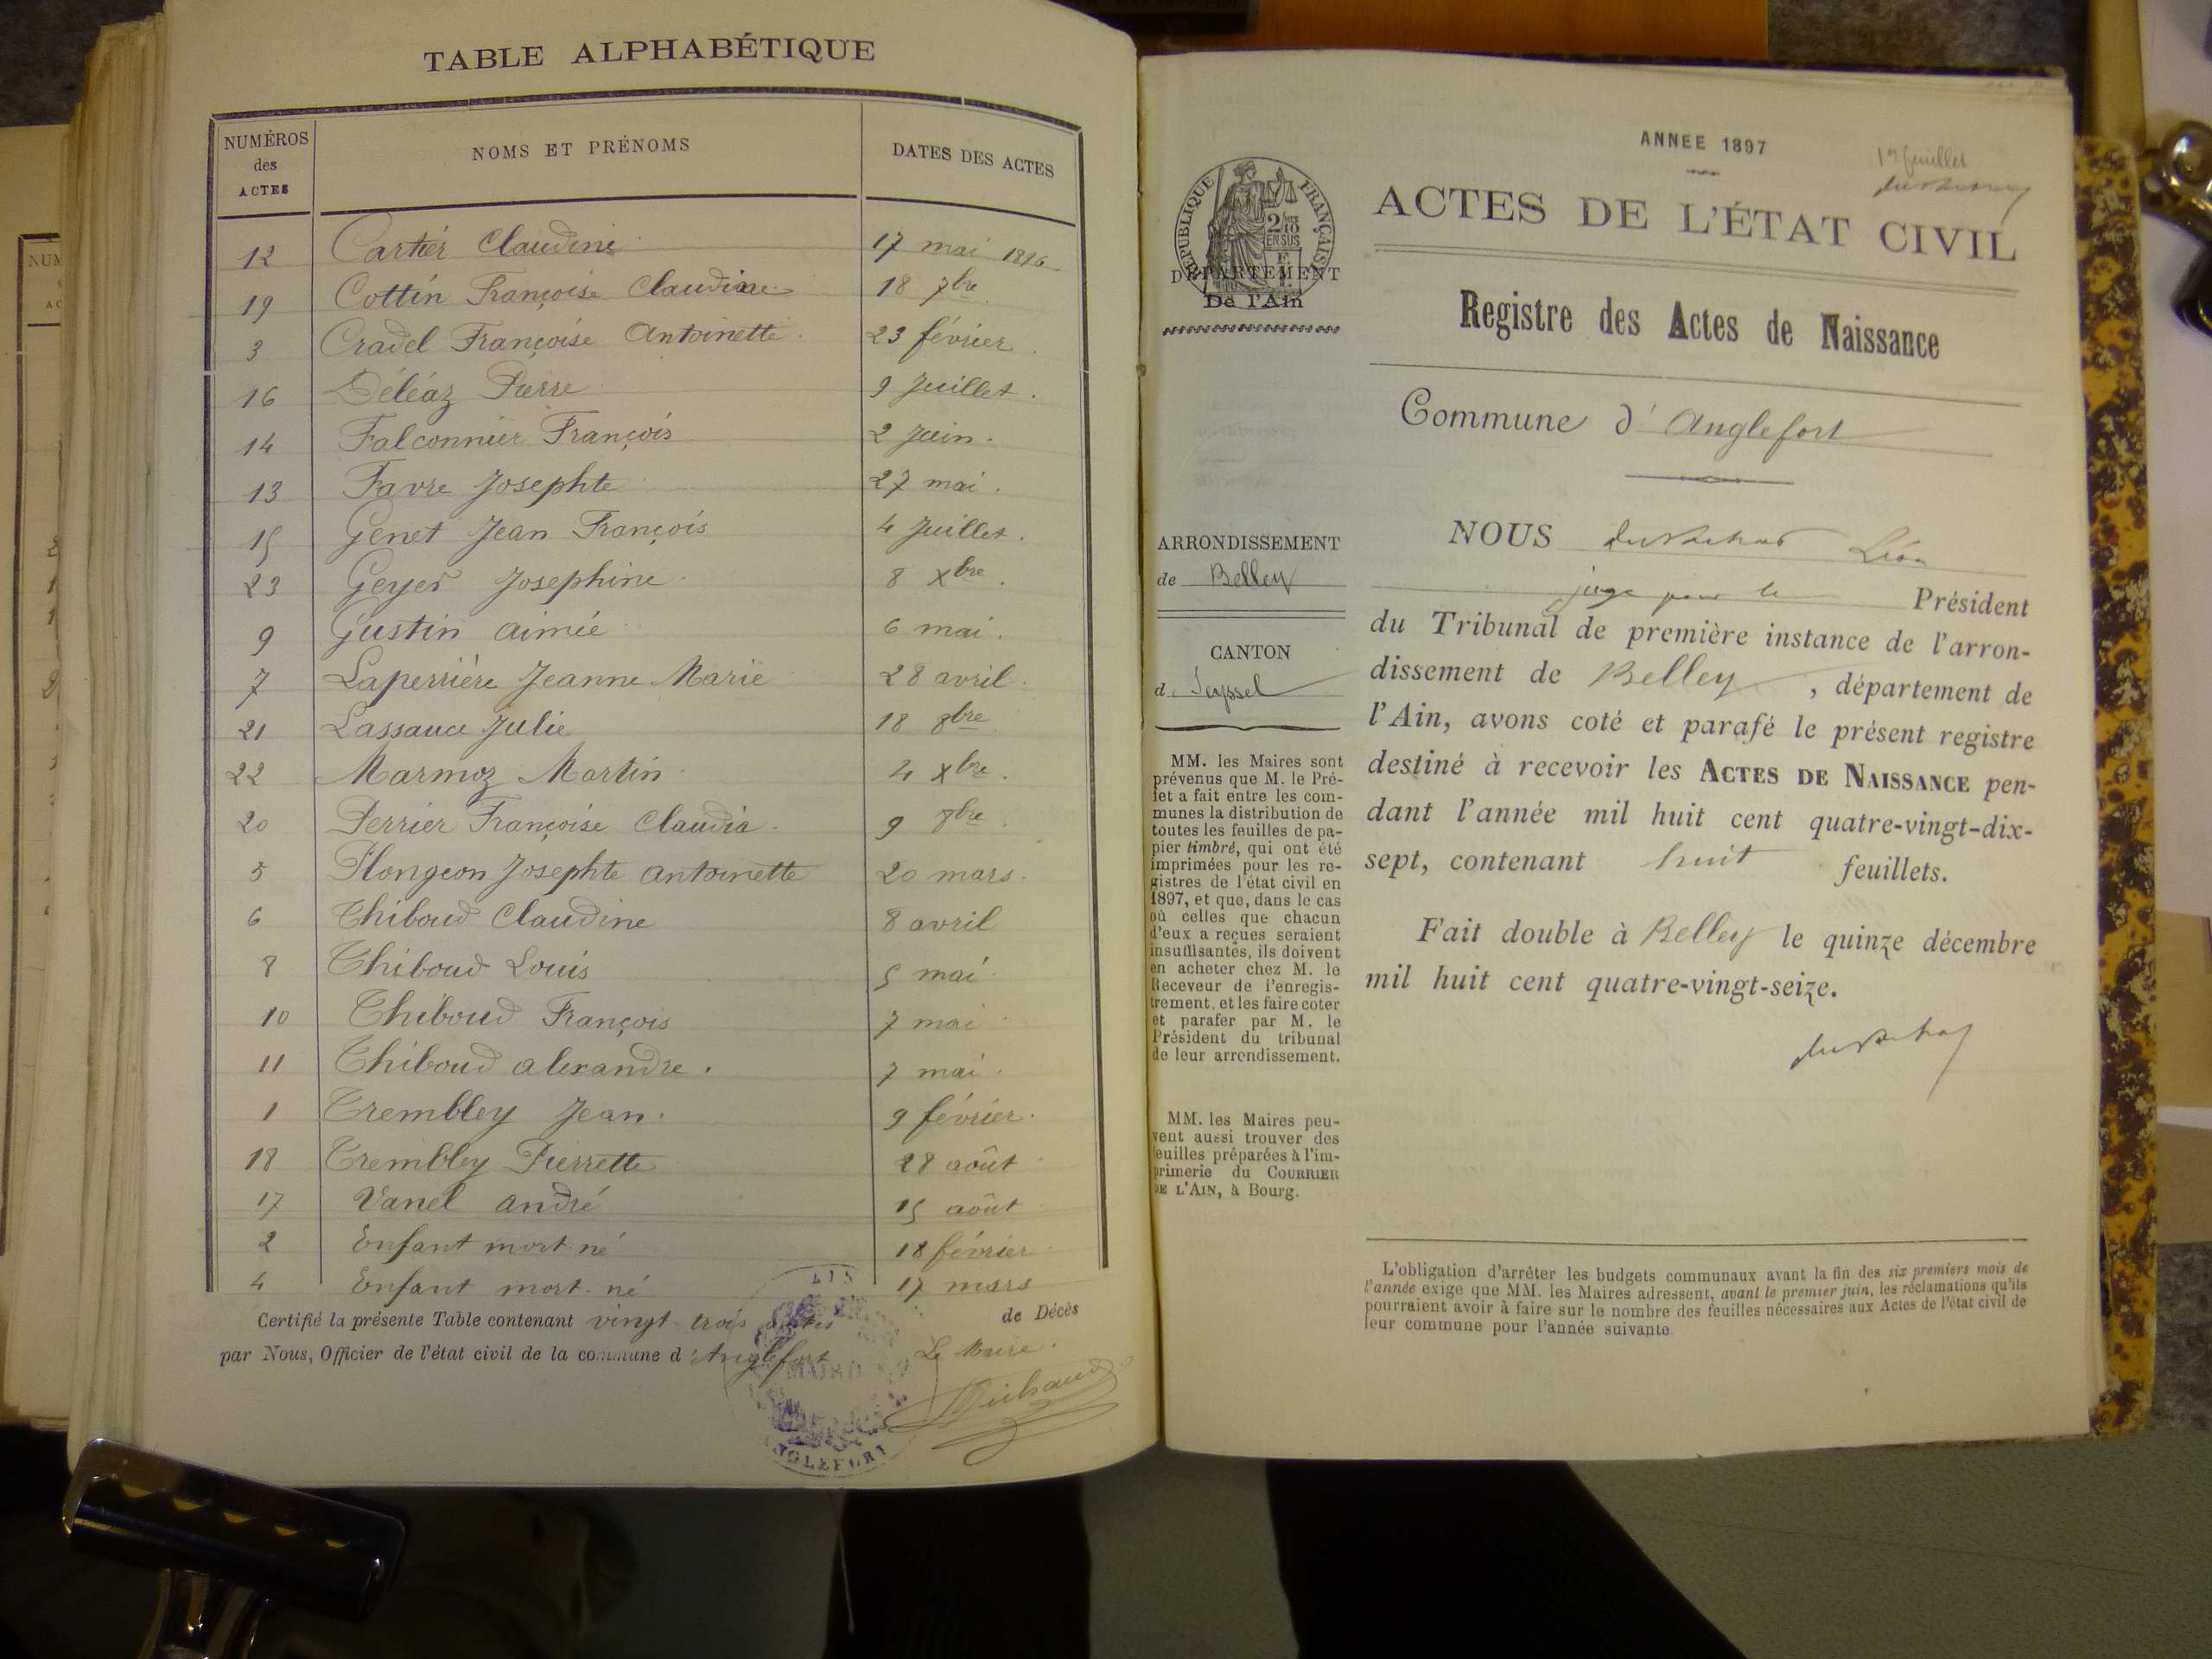 TABLE ALPHABÉTIQUE
NUMÉROS des ACTES NOMS ET PRÉNOMS DATES DES ACTES
12 Cartier Claudine 17 mai 1896
19 Cottin Françoise Claudine 18 7bre
3 Cradel Françoise Antoinette 23 février
16 Déléaz Pierre 9 Juillet
14 Falconnier François 2 Juin
13 Favre Josephte 27 mai
15 Genet Jean François 4 Juillet
23 Geyer Josephine 8 Xbre
9 Gustin Aimée 6 mai
7 Laperrière Jeanne Marie 28 avril
21 Lassauce Julie 18 8bre
22 Marmoz Martin 4 Xbre
20 Perrier Françoise Claudia 9 8bre
5 Plongeon Josephte Antoinette 20 mars
6 Thiboud Claudine 8 avril
8 Thiboud Louis 5 mai
10 Thiboud François 7 mai
11 Thiboud Alexandre 7 mai
1 Trembley Jean 9 février
18 Trembley Pierrette 28 août
17 Vanel André 15 août
2 Enfant mort-né 18 février
4 Enfant mort-né 17 mars
Certifié la présente Table contenant vingt-trois actes de Décès
par Nous, Officier de l'état civil de la commune d'Anglefort
Le Maire
AIN
ANGLEFORT
ANNEE 1897
1er feuillet
RÉPUBLIQUE FRANÇAISE
ACTES DE L'ÉTAT CIVIL
DÉPARTEMENT
De l'Ain
Registre des Actes de Naissance
Commune d'Anglefort
ARRONDISSEMENT
de Belley
CANTON
de Seyssel
MM. les Maires sont
prévenus que M. le Pré-
fet a fait entre les com-
munes la distribution de
toutes les feuilles de pa-
pier timbré, qui ont été
imprimées pour les re-
gistres de l'état civil en
1897, et que, dans le cas
où celles que chacun
d'eux a reçues seraient
insuffisantes, ils doivent
en acheter chez M. le
Receveur de l'enregis-
trement, et les faire coter
et parafer par M. le
Président du tribunal
de leur arrondissement.
MM. les Maires peu-
vent aussi trouver des
feuilles préparées à l'im-
primerie du COURRIER
DE L'AIN, à Bourg.
NOUS Léon
juge pour le Président
du Tribunal de première instance de l'arron-
dissement de Belley, département de
l'Ain, avons coté et parafé le présent registre
destiné à recevoir les ACTES DE NAISSANCE pen-
dant l'année mil huit cent quatre-vingt-dix-
sept, contenant huit feuillets.
Fait double à Belley le quinze décembre
mil huit cent quatre-vingt-seize.
L'obligation d'arrêter les budgets communaux avant la fin des six premiers mois de
l'année exige que MM. les Maires adressent, avant le premier juin, les réclamations qu'ils
pourraient avoir à faire sur le nombre des feuilles nécessaires aux Actes de l'état civil de
leur commune pour l'année suivante.